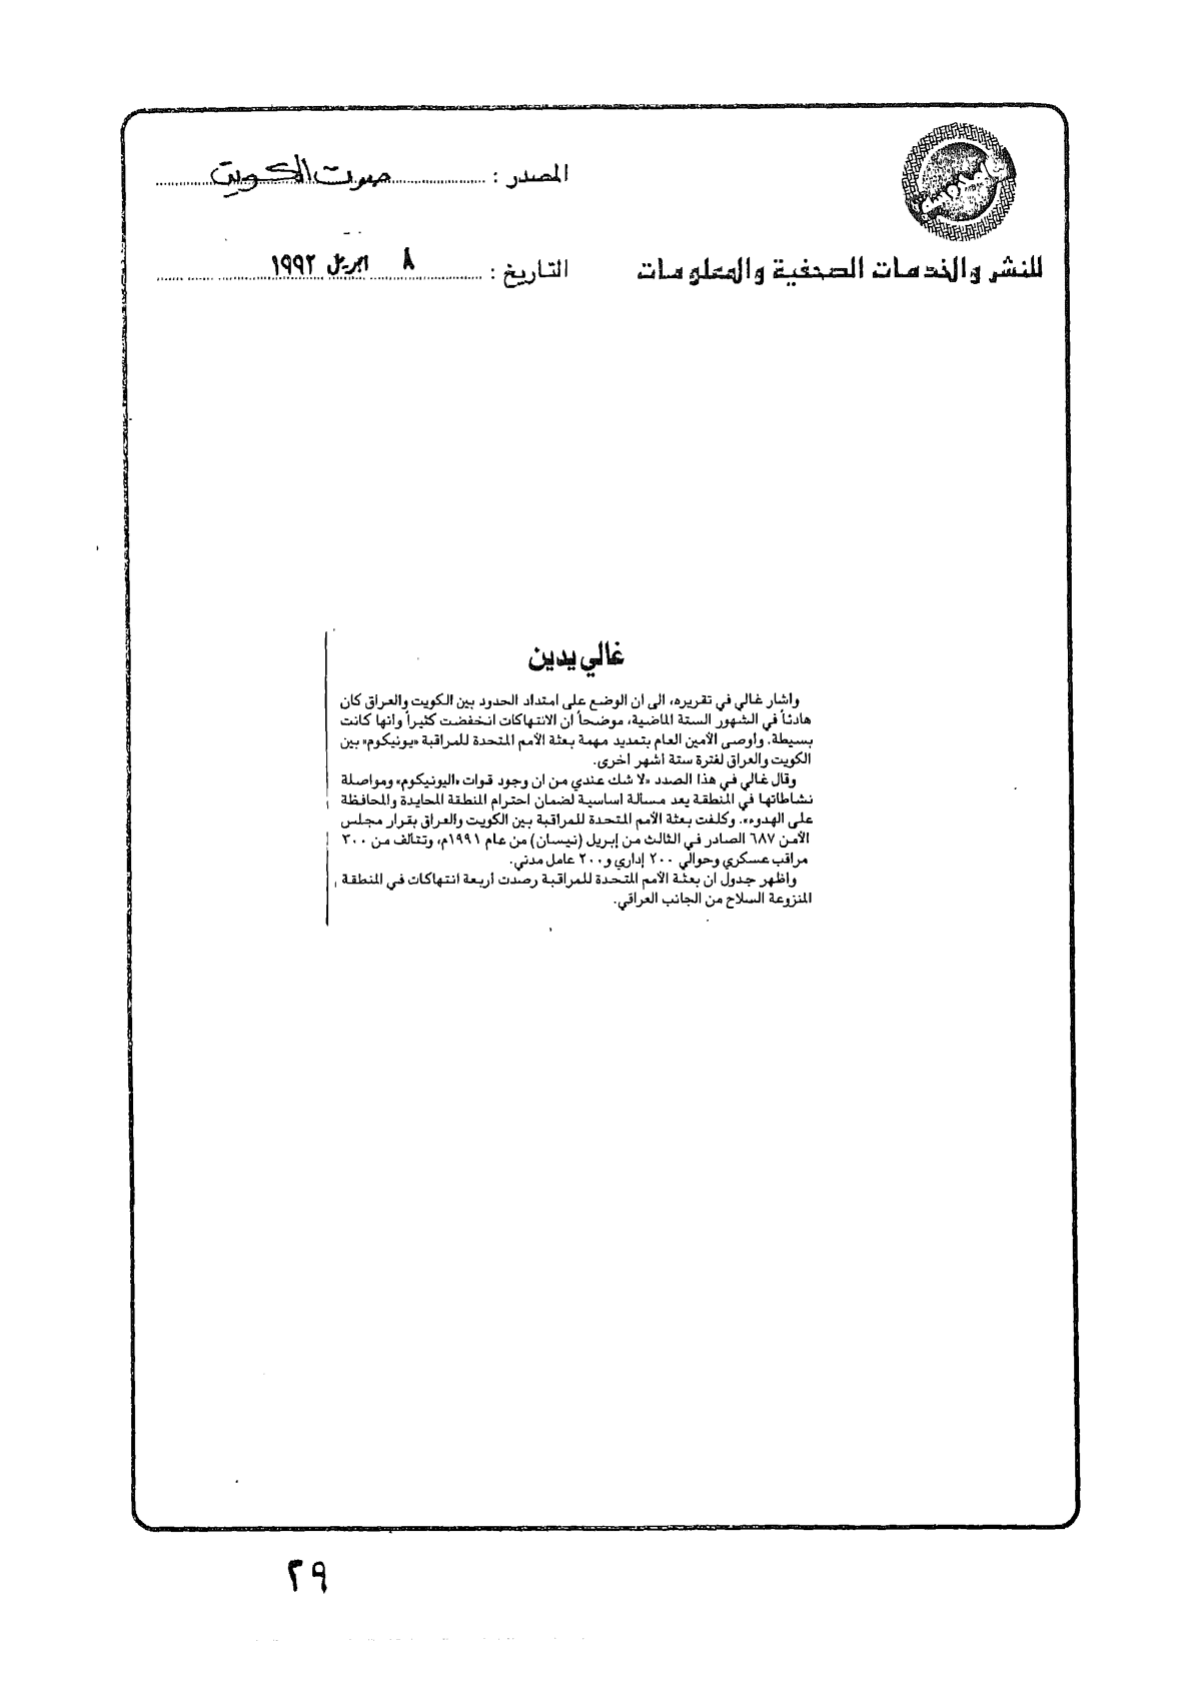 المصدر : صوت الكويت
للنشر والخدمات الصحفية والمعلومات
التاريخ : ٨ ابريل ١٩٩٢
غالي يدين
واشار غالي في تقريره، الى ان الوضع على امتداد الحدود بين الكويت والعراق كان
هادئاً في الشهور الستة الماضية، موضحاً ان الانتهاكات انخفضت كثيراً وانها كانت
بسيطة. واوصى الأمين العام بتمديد مهمة بعثة الأمم المتحدة للمراقبة «يونيكوم» بين
الكويت والعراق لفترة ستة اشهر اخرى.
وقال غالي في هذا الصدد «لا شك عندي من ان وجود قوات «اليونيكوم» ومواصلة
نشاطاتها في المنطقة يعد مسالة اساسية لضمان احترام المنطقة المحايدة والمحافظة
على الهدوء». وكلفت بعثة الأمم المتحدة للمراقبة بين الكويت والعراق بقرار مجلس
الأمن ٦٨٧ الصادر في الثالث من إبريل (نيسان) من عام ١٩٩١م، وتتالف من ٣٠٠
مراقب عسكري وحوالي ٢٠٠ إداري و٢٠٠ عامل مدني.
واظهر جدول ان بعثة الأمم المتحدة للمراقبة رصدت أربعة انتهاكات في المنطقة
المنزوعة السلاح من الجانب العراقي.
٢٩